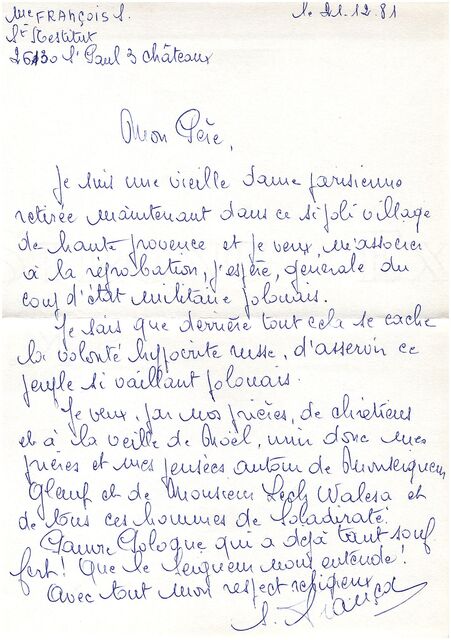 Mme FRANÇOIS S.
le 21.12.81
St Restitut
26130 St Paul 3 châteaux
Mon Père,
Je suis une vieille dame parisienne
retirée maintenant dans ce si joli village
de haute provence et je veux m'associer
à la réprobation, j'espère, générale du
coup d'état militaire polonais.
Je sais que derrière tout cela se cache
la volonté hypocrite russe, d'asservir ce
peuple si vaillant polonais.
Je veux, par nos prières, de chrétiens
et à la veille de Noël, unir donc mes
prières et mes pensées autour de Monseigneur
Glemp et de Monsieur Lech Walesa et
de tous ces hommes de Soladirate.
Pauvre Pologne qui a déjà tant souf
fert! Que le Seigneur nous entende!
Avec tout mon respect religieux
S. François